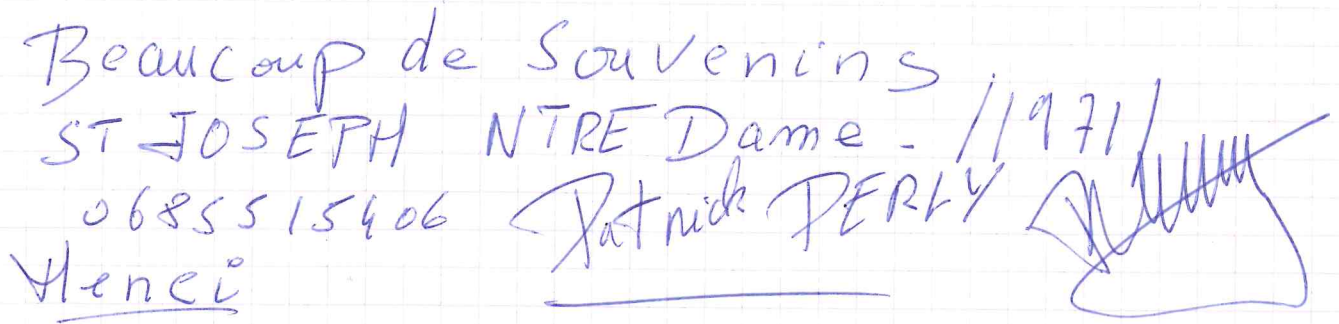 Beaucoup de Souvenirs.
ST JOSEPH NTRE Dame - /1971/
0685515406 Patrick PERLY
Merci